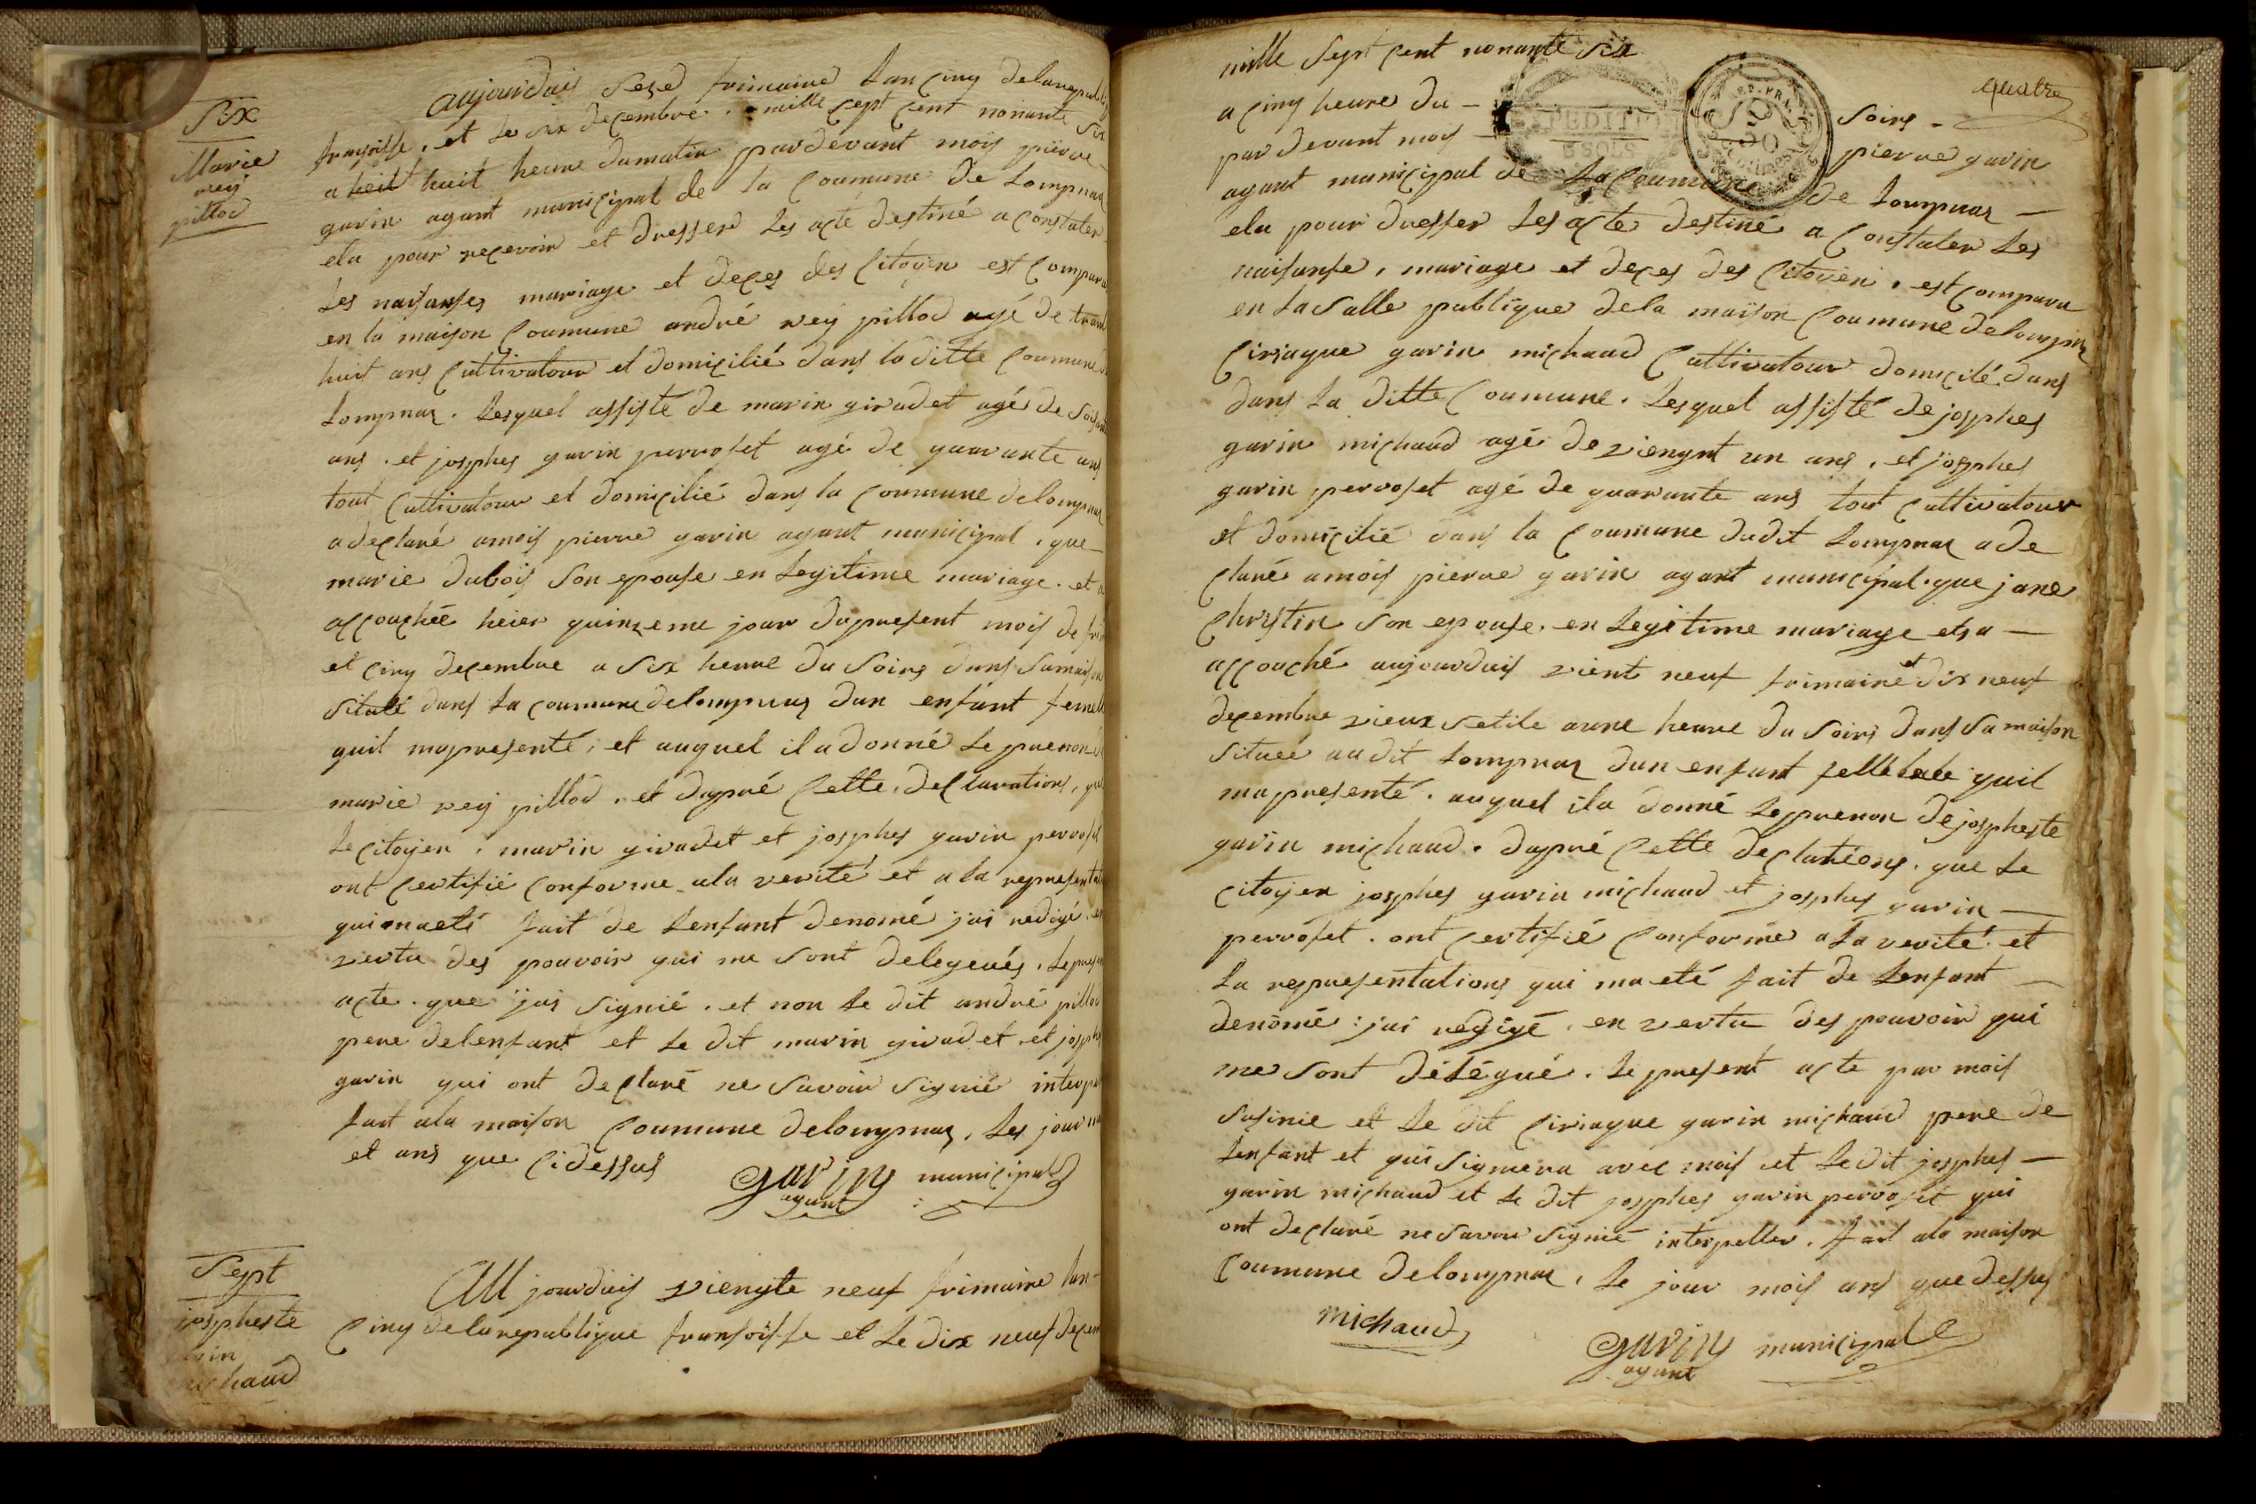 Six
Marie
rey
pillod
aujourduis seze frimaire lan cinq delarepubliq
fransoisse, et le six decembre. mille sept cent nonante six
a heit huit heure dumatin pardevant mois pierre
gavin agant municipal de la Coumune de Lompnaz
elu pour recevoir et dresser les acte destiné a constater
les naisanses mariage et deces des citoyin est comparu
en la maison Coumune andré rey pillod agé de trant
huit ans cultivatour et domicilié dans la ditte Coumune
Lompnaz. Lesquel assisté de marin giradet agé de soisant
ans. et josphes gavin perroset agé de quarante ans
tout cultivatour et domicilié dans la Coumune delompnaz
adeclaré amois pierre gavin agant municipal. que
marie dubois son epouse en legitime mariage. et a
accouchée heier quinzeme jour dupresent mois de fri
et cinq decembre a six heure du soirs dans samaison
situlé dans la coumune delompnaz dun enfant femelle
quil mapresenté, et auquel il adonné le prenon de
marie rey pillod. et dapré cette declaration, que
le citoyen. marin giradet et josphes gavin perroset
ont certifié conforme ala verité et ala represantat
qui maeté fait de lenfant denomé jai redigé. en
vertu des pouvoir qui me sont delegués. lepresen
acte. que jai signié. et non le dit andré pillod
pere delenfant et le dit marin giradet et josphes
gavin qui ont declaré ne savoir signié interp
fait ala maison Coumune delompnaz, les jour m
et ans que cidessus
gavin municipal
agant
Sept
jospheste
michaud
AU jourduis viengte neuf frimaire lan-
cinq delarepublique fransoisse et le dix neuf decem
quatre
mille sept cent nonante six
a cinq heure du - soirs -
par devant mois pierre gavin
agant municipal de la Coumune de Lompnaz -
elu pour dresser les acte destiné a constater les
naisanse, mariage et deces des citoien, est comparu
en la salle publique dela maison Coumune delompnaz
ciriaque gavin michaud cultivatour domicilé dans
dans la ditte Coumune. Lesquel assisté de josphes
gavin michaud agé de viengnt un ans, et josphes
gavin perroset agé de quarante ans tout cultivatour
et domicilié dans la Coumune dudit Lompnaz a de
claré amois pierre gavin agant municipal. que jane
christin son epouse. en legitime mariage et a -
accouché aujourduis vient neuf frimaire et dix neuf
decembre vieux setile aune heure du soirs dans sa maison
situeé audit Lompnaz dun enfant quil
mapresenté. auquel ila donné le prenon de jospheste
gavin michaud. dapré cette declations. que le
citoyen josphes gavin michaud et josphes gavin -
perroset. ont certifié conforme ala verité et
la representations qui maeté fait de lenfant -
denomé: jai redigé. en vertu des pouvoir qui
me sont délégué. le present acte par mois
susinie et le dit ciriaque gavin michaud pere de
lenfant et qui signiera avec mois et le dit josphes -
gavin michaud et le dit josphes gavin perroset qui
ont declaré ne savoir signié interpeller. fait ala maison
Coumune delompnaz, le jour mois ans que dessus
Michaud
gavin municipal
agant